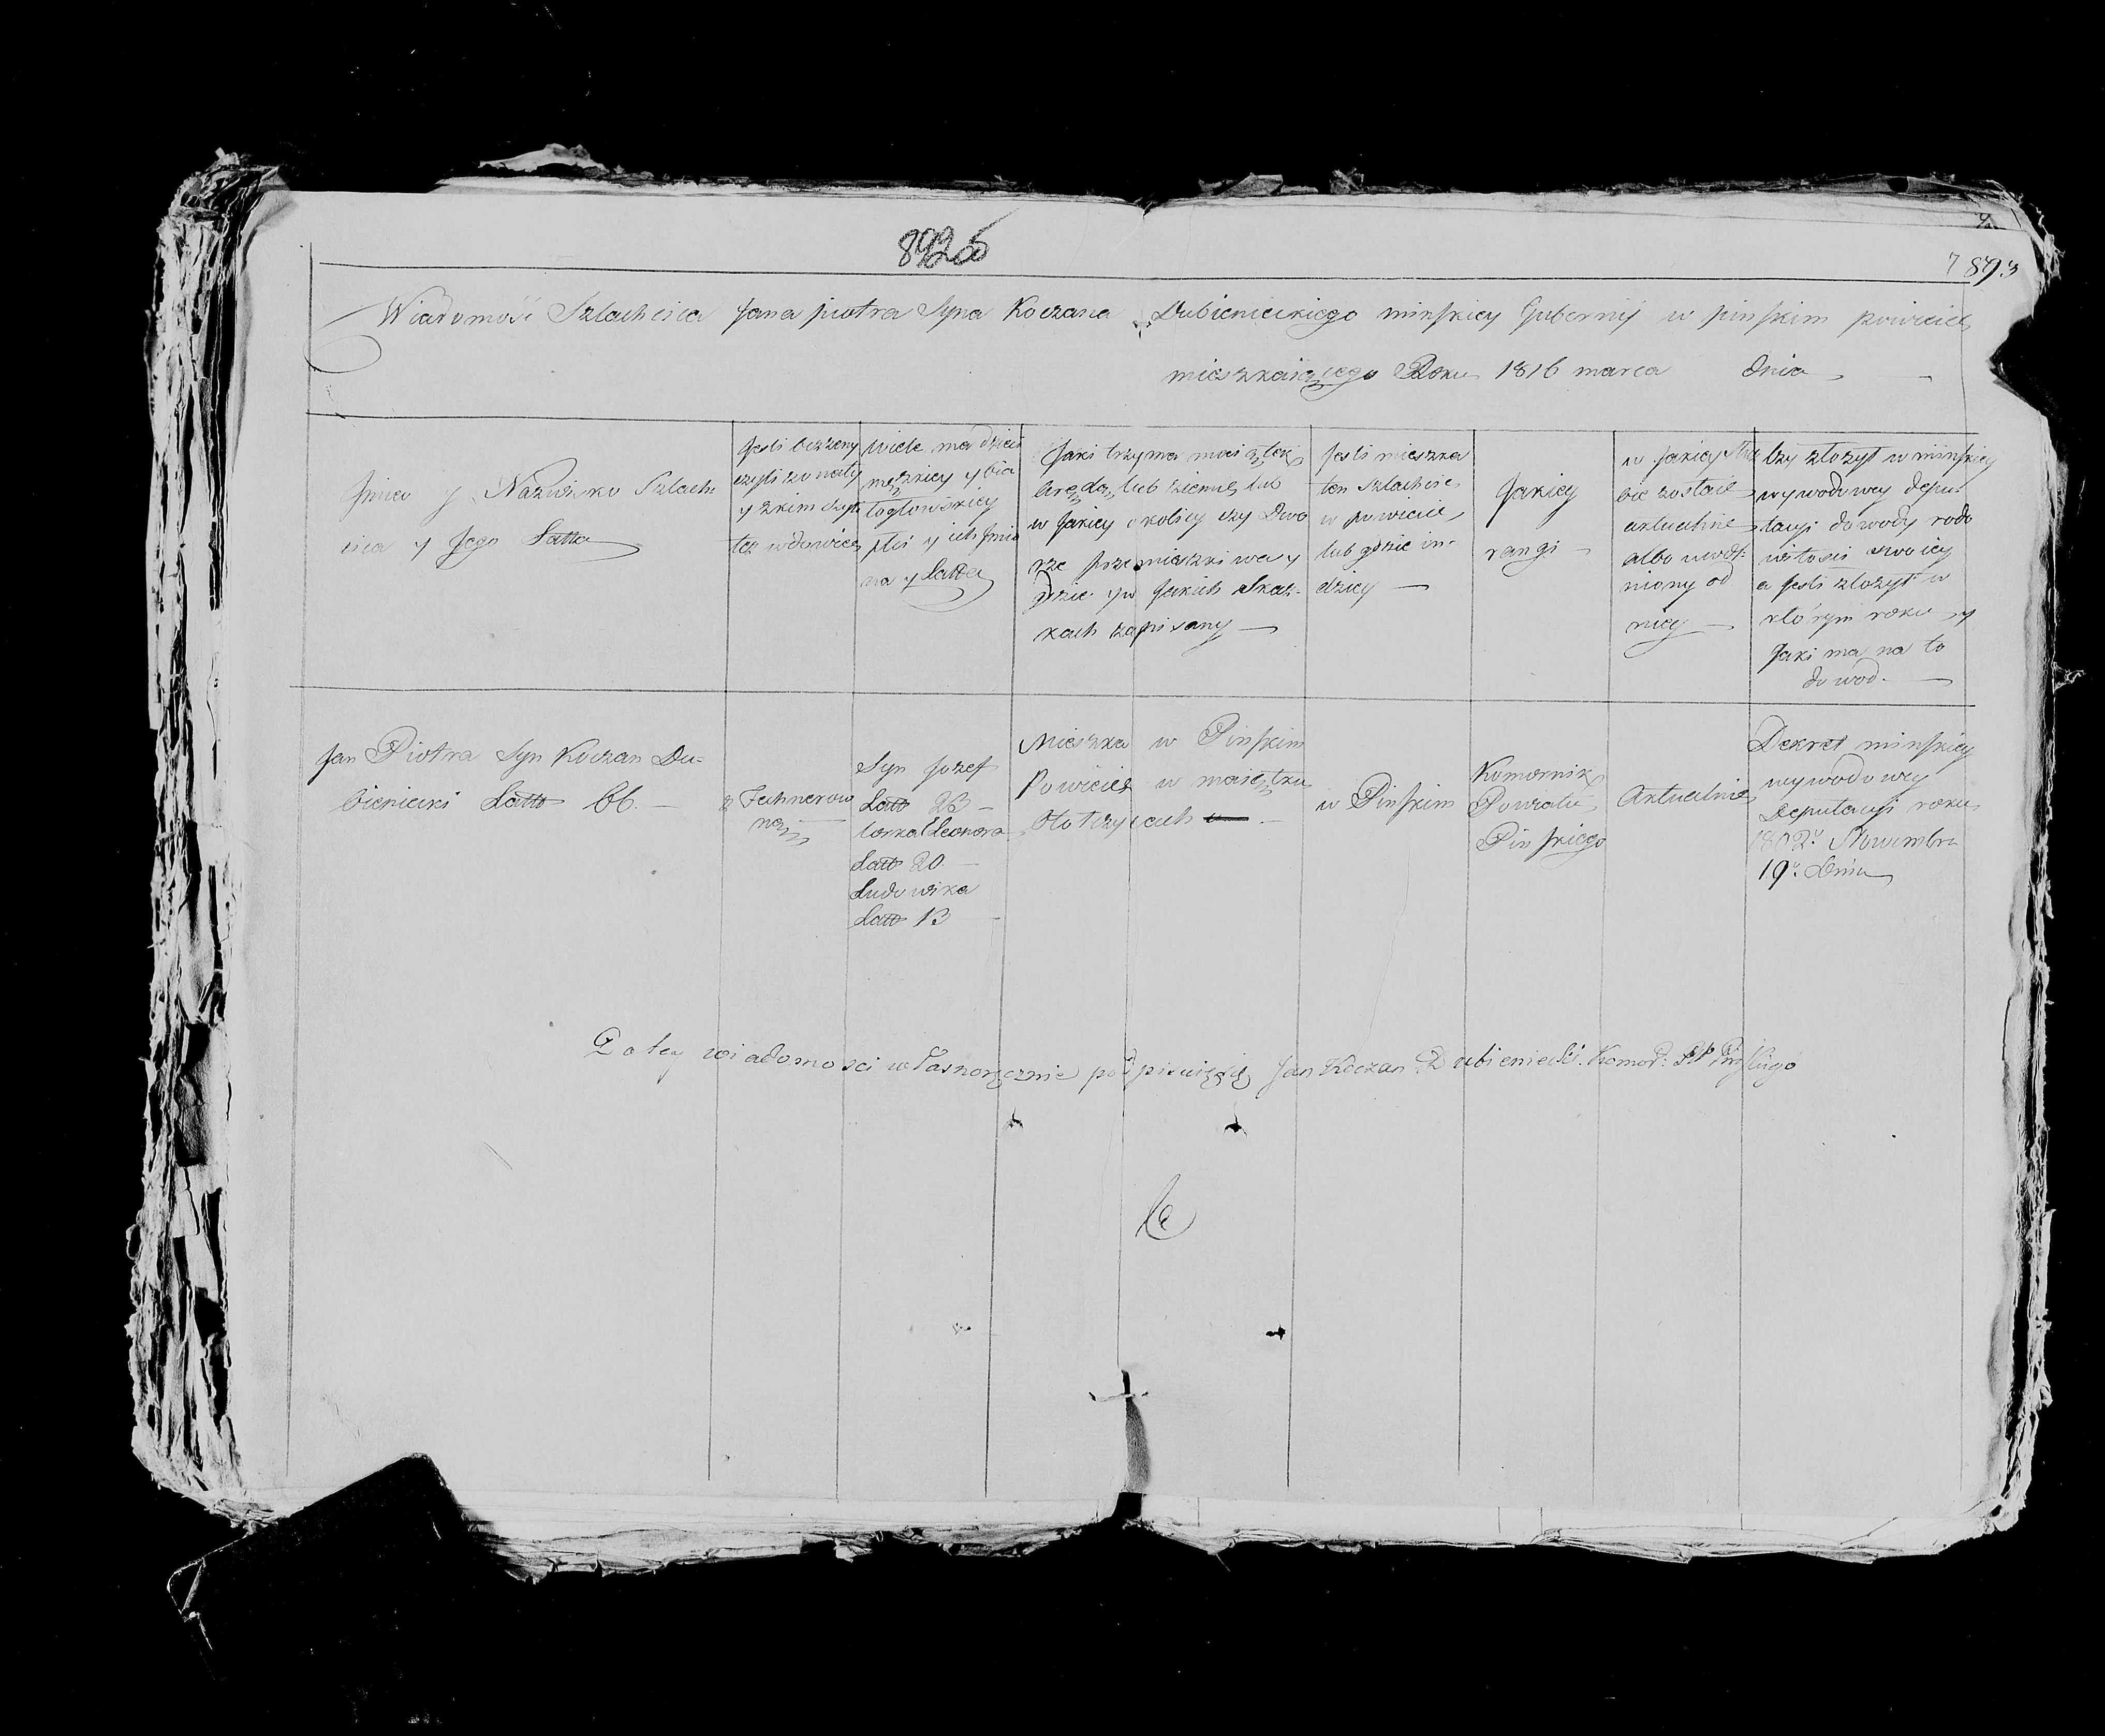 892 об
7 893
Wiadomość Szlachcica Jana piotra Syna Koczana Dubienieckiego minskiey Gubernij w pinskim powiecie
mieszkaiącego Roku 1816 marca dnia
Jmie y Nazwisko Szlach
cica y Jego Latta
Jesli bezżeny
czyli żonaty
y z kim czyli
też wdowiec
wiele ma dzieci
męzkiey y bia
łogłowskiey
płci y ich Jmio
na y Latta
Jaki trzyma maiątek
arędą lub ziemię lub
w Jakiey okolicy czy Dwo
rze przemieszkiwa y
gdzie y w Jakich Skaz-
kach zapisany
Jesli mieszka
ten szlachcic
w powiecie
lub gdzie in-
dziey
Jakiey
rangi
w Jakiey Służ
bie zostaie
aktualnie
albo uwol-
niony od
niey
czy złożył w minskiey
wywodowey depu-
tacyi dowody rodo
witosci swoiey
a Jesli złożył w
którym roku y
Jaki ma na to
dowod.
Jan Piotra Syn Koczan Du-
bieniecki Latt 66.
z Fechnerow
ną
Syn Jozef
Latt 23
Corka Eleonora
Latt 20
Ludowika
Latt 13
Mieszka w Pinskim
Powiecie w maiętku
w Pinskim
Komornik
Powiatu
Pinskiego
Aktualnie
Dekret minskiey
wywodowey
Deputacyi roku
1802. Nowembra
19. Dnia
Do tey wiadomosci własnorącznie podpisuię się Jan Koczan Dubieniecki. Komor: Pttu Pińskiego